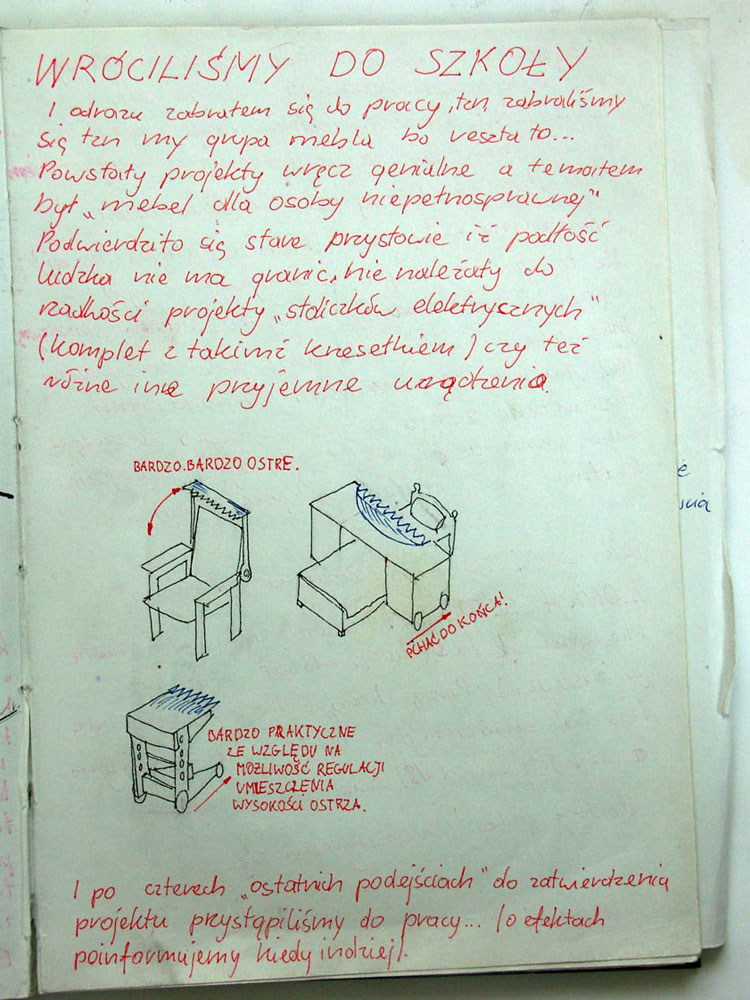 WRÓCILIŚMY DO SZKOŁY
I odrazu zabrałem się do pracy, tzn. zabraliśmy
się tzn my grupa mebla bo reszta to...
Powstały projekty wręcz genialne a tematem
był „mebel dla osoby niepełnosprawnej"
Podwierdziło się stare przysłowie iż podłość
ludzka nie ma granic, nie należały do
rzadkości projekty „stoliczków elektrycznych"
(komplet z takimż krzesełkiem) czy też
różne ine przyjemne urządzenia.
BARDZO, BARDZO OSTRE.
PCHAĆ DO KOŃCA!
BARDZO PRAKTYCZNE
ZE WZGLĘDU NA
MOŻLIWOŚĆ REGULACJI
UMIESZCZENIA
WYSOKOŚCI OSTRZA.
I po czterech „ostatnich podejściach" do zatwierdzenia
projektu przystąpiliśmy do pracy... (o efektach
poinformujemy kiedy indziej).